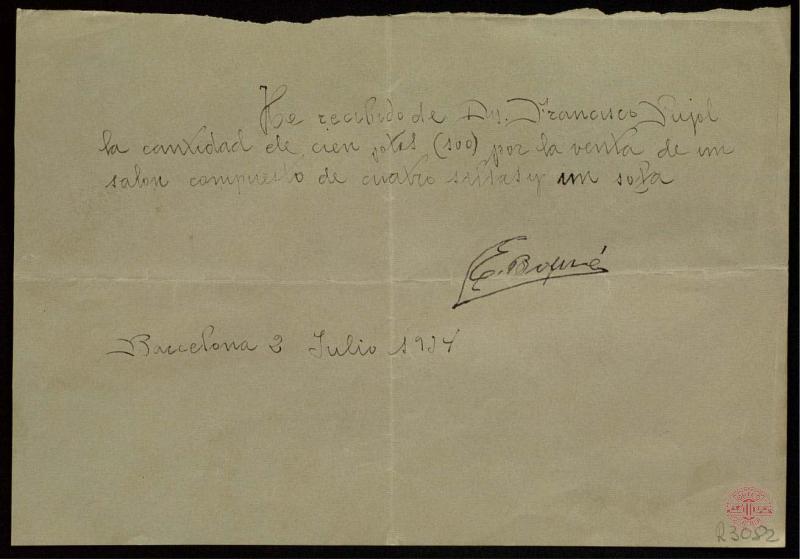 He recibido de Dn. Francisco Pujol
la cantidad de cien ptas (100) por la venta de un
salon compuesto de cuatro sillas y un sofa
Barcelona 2 Julio 1934
R3052